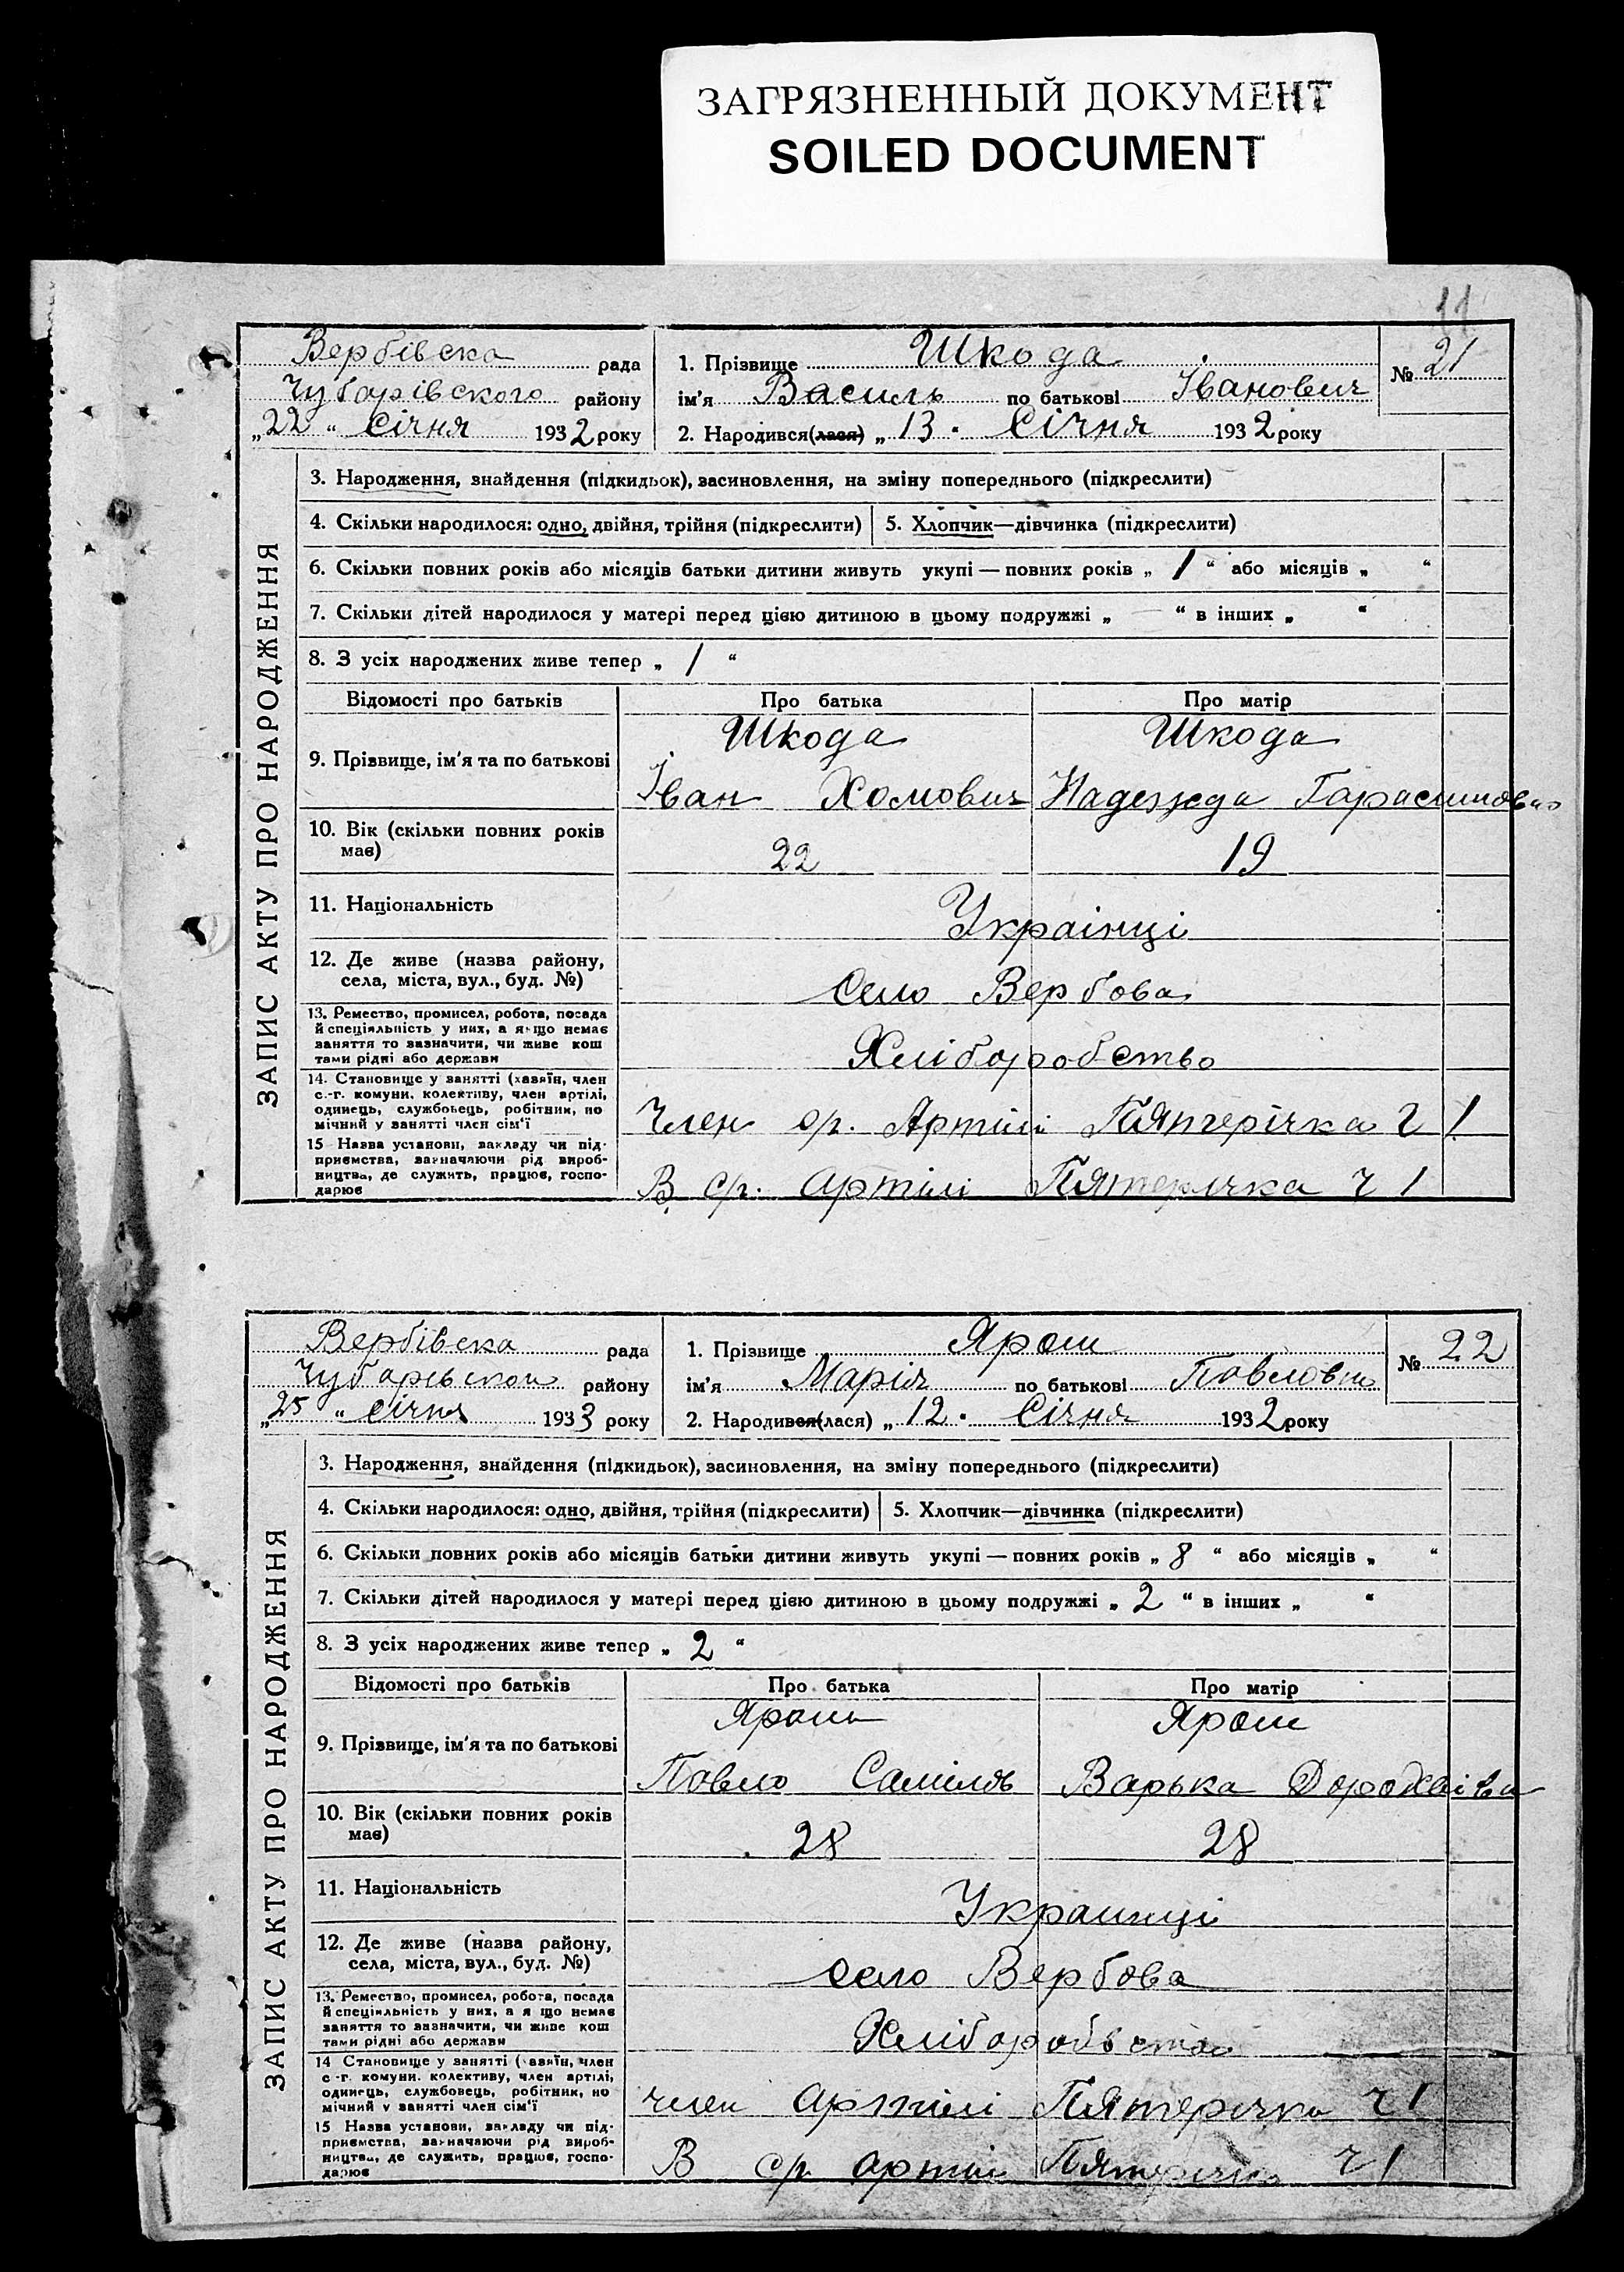 ЗАГРЯЗНЕННЫЙ ДОКУМЕНТ
SOILED DOCUMENT
11
Вербівска рада
Чубарівского району
„22“ Січня 1932 року
1. Прізвище Шкода
ім'я Василь по батькові Іванович
2. Народився(лася) „13. Січня 1932 року
№ 21
ЗАПИС АКТУ ПРО НАРОДЖЕННЯ
3. Народження, знайдення (підкидьок), засиновлення, на зміну попереднього (підкреслити)
4. Скільки народилося: одно, двійня, трійня (підкреслити) 5. Хлопчик—дівчинка (підкреслити)
6. Скільки повних років або місяців батьки дитини живуть укупі — повних років „ 1 “ або місяців „ “
7. Скільки дітей народилося у матері перед цією дитиною в цьому подружжі „ — “ в інших „ “
8. З усіх народжених живе тепер „ 1 “
Відомості про батьків Про батька Про матір
9. Прізвище, ім'я та по батькові
Шкода Шкода
Іван Хомович Надежда
10. Вік (скільки повних років має)
22 19
11. Національність
Українці
12. Де живе (назва району, села, міста, вул., буд. №)
Село Вербова
13. Ремество, промисел, робота, посада
й спеціяльність у них, а якщо немає
заняття то зазначити, чи живе кош
тами рідні або держави
Хліборобство
14. Становище у занятті (хазяїн, член
с.-г. комуни, колективу, член артілі,
одинець, службовець, робітник, по
мічний у занятті член сім'ї
Член ср. Артілі Пятерічка Ч 1
15 Назва установи, закладу чи під-
приємства, зазначаючи рід вироб-
ництва, де служить, працює, госпо-
дарює
В ср. артілі Пятерічка ч 1
Вербівска рада
району
„25“ січня 1933 року
1. Прізвище Ярош
ім'я Марія по батькові Павловна
2. Народився(лася) „12. Січня 1932 року
№ 22
ЗАПИС АКТУ ПРО НАРОДЖЕННЯ
3. Народження, знайдення (підкидьок), засиновлення, на зміну попереднього (підкреслити)
4. Скільки народилося: одно, двійня, трійня (підкреслити) 5. Хлопчик—дівчинка (підкреслити)
6. Скільки повних років або місяців батьки дитини живуть укупі — повних років „ 8 “ або місяців „ “
7. Скільки дітей народилося у матері перед цією дитиною в цьому подружжі „ 2 “ в інших „ “
8. З усіх народжених живе тепер „ 2 “
Відомості про батьків Про батька Про матір
9. Прізвище, ім'я та по батькові
Ярош Ярош
Павло Варька
10. Вік (скільки повних років має)
28 28
11. Національність
Украинці
12. Де живе (назва району, села, міста, вул., буд. №)
село Вербова
13. Ремество, промисел, робота, посада
й спеціяльність у них, а якщо немає
заняття то зазначити, чи живе кош
тами рідні або держави
14 Становище у занятті (хазяїн, член
с-г. комуни, колективу, член артілі,
одинець, службовець, робітник, по
мічний у занятті член сім'ї
член артілі Пятерічка ч 1
15 Назва установи, закладу чи під-
приємства, зазначаючи рід вироб-
ництва, де служить, працює, госпо-
дарює
В ср артілі Пятерічка ч 1